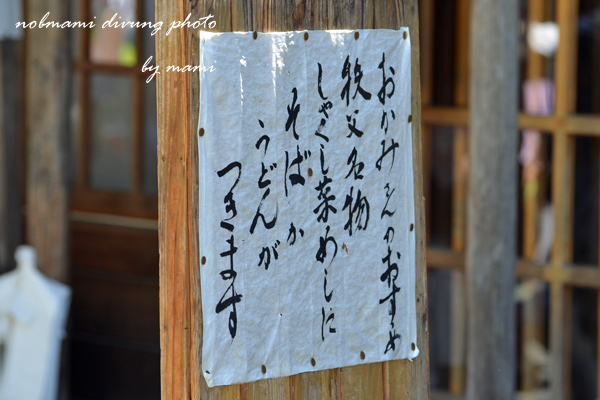 nobmami divung photo
by mami
おかみさんのおすすめ
秩父名物
しゃくし菜めしに
そばか
うどんが
つきます